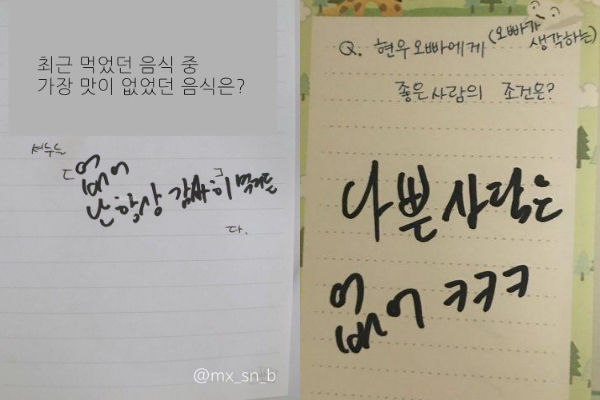 최근 먹었던 음식 중
가장 맛이 없었던 음식은?
셔누는
[없어
난 항상 감사히] 먹거든
다.
@mx_sn_b
Q. 현우오빠에게 (오빠가 생각하는)
좋은사람의 조건은?
나쁜사람은
없어 ㅋㅋㅋ